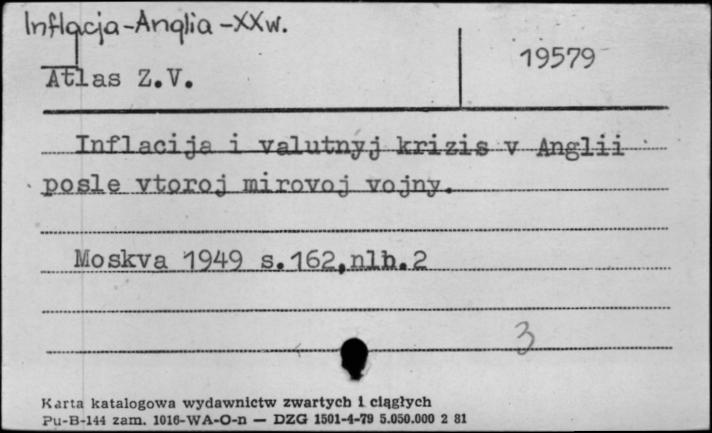 Inflacja-Anglia-XXw.
19579
Atlas Z.V.
Inflacija i valutnyj krizis v Anglii
posle vtoroj mirovoj vojny.
Moskva 1949 s.162,nlb.2
3
Karta katalogowa wydawnictw zwartych i ciągłych
Pu-B-144 zam. 1016-WA-O-n — DZG 1501-4-79 5.050.000 2 81